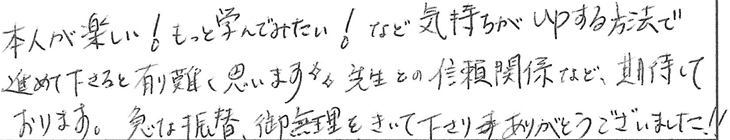 本人が楽しい！もっと学んでみたい！など気持ちがUPする方法で
進めて下さると有り難く思います 先生との信頼関係など、期待して
おります。急な振替、御無理をきいて下さり ありがとうございました!!